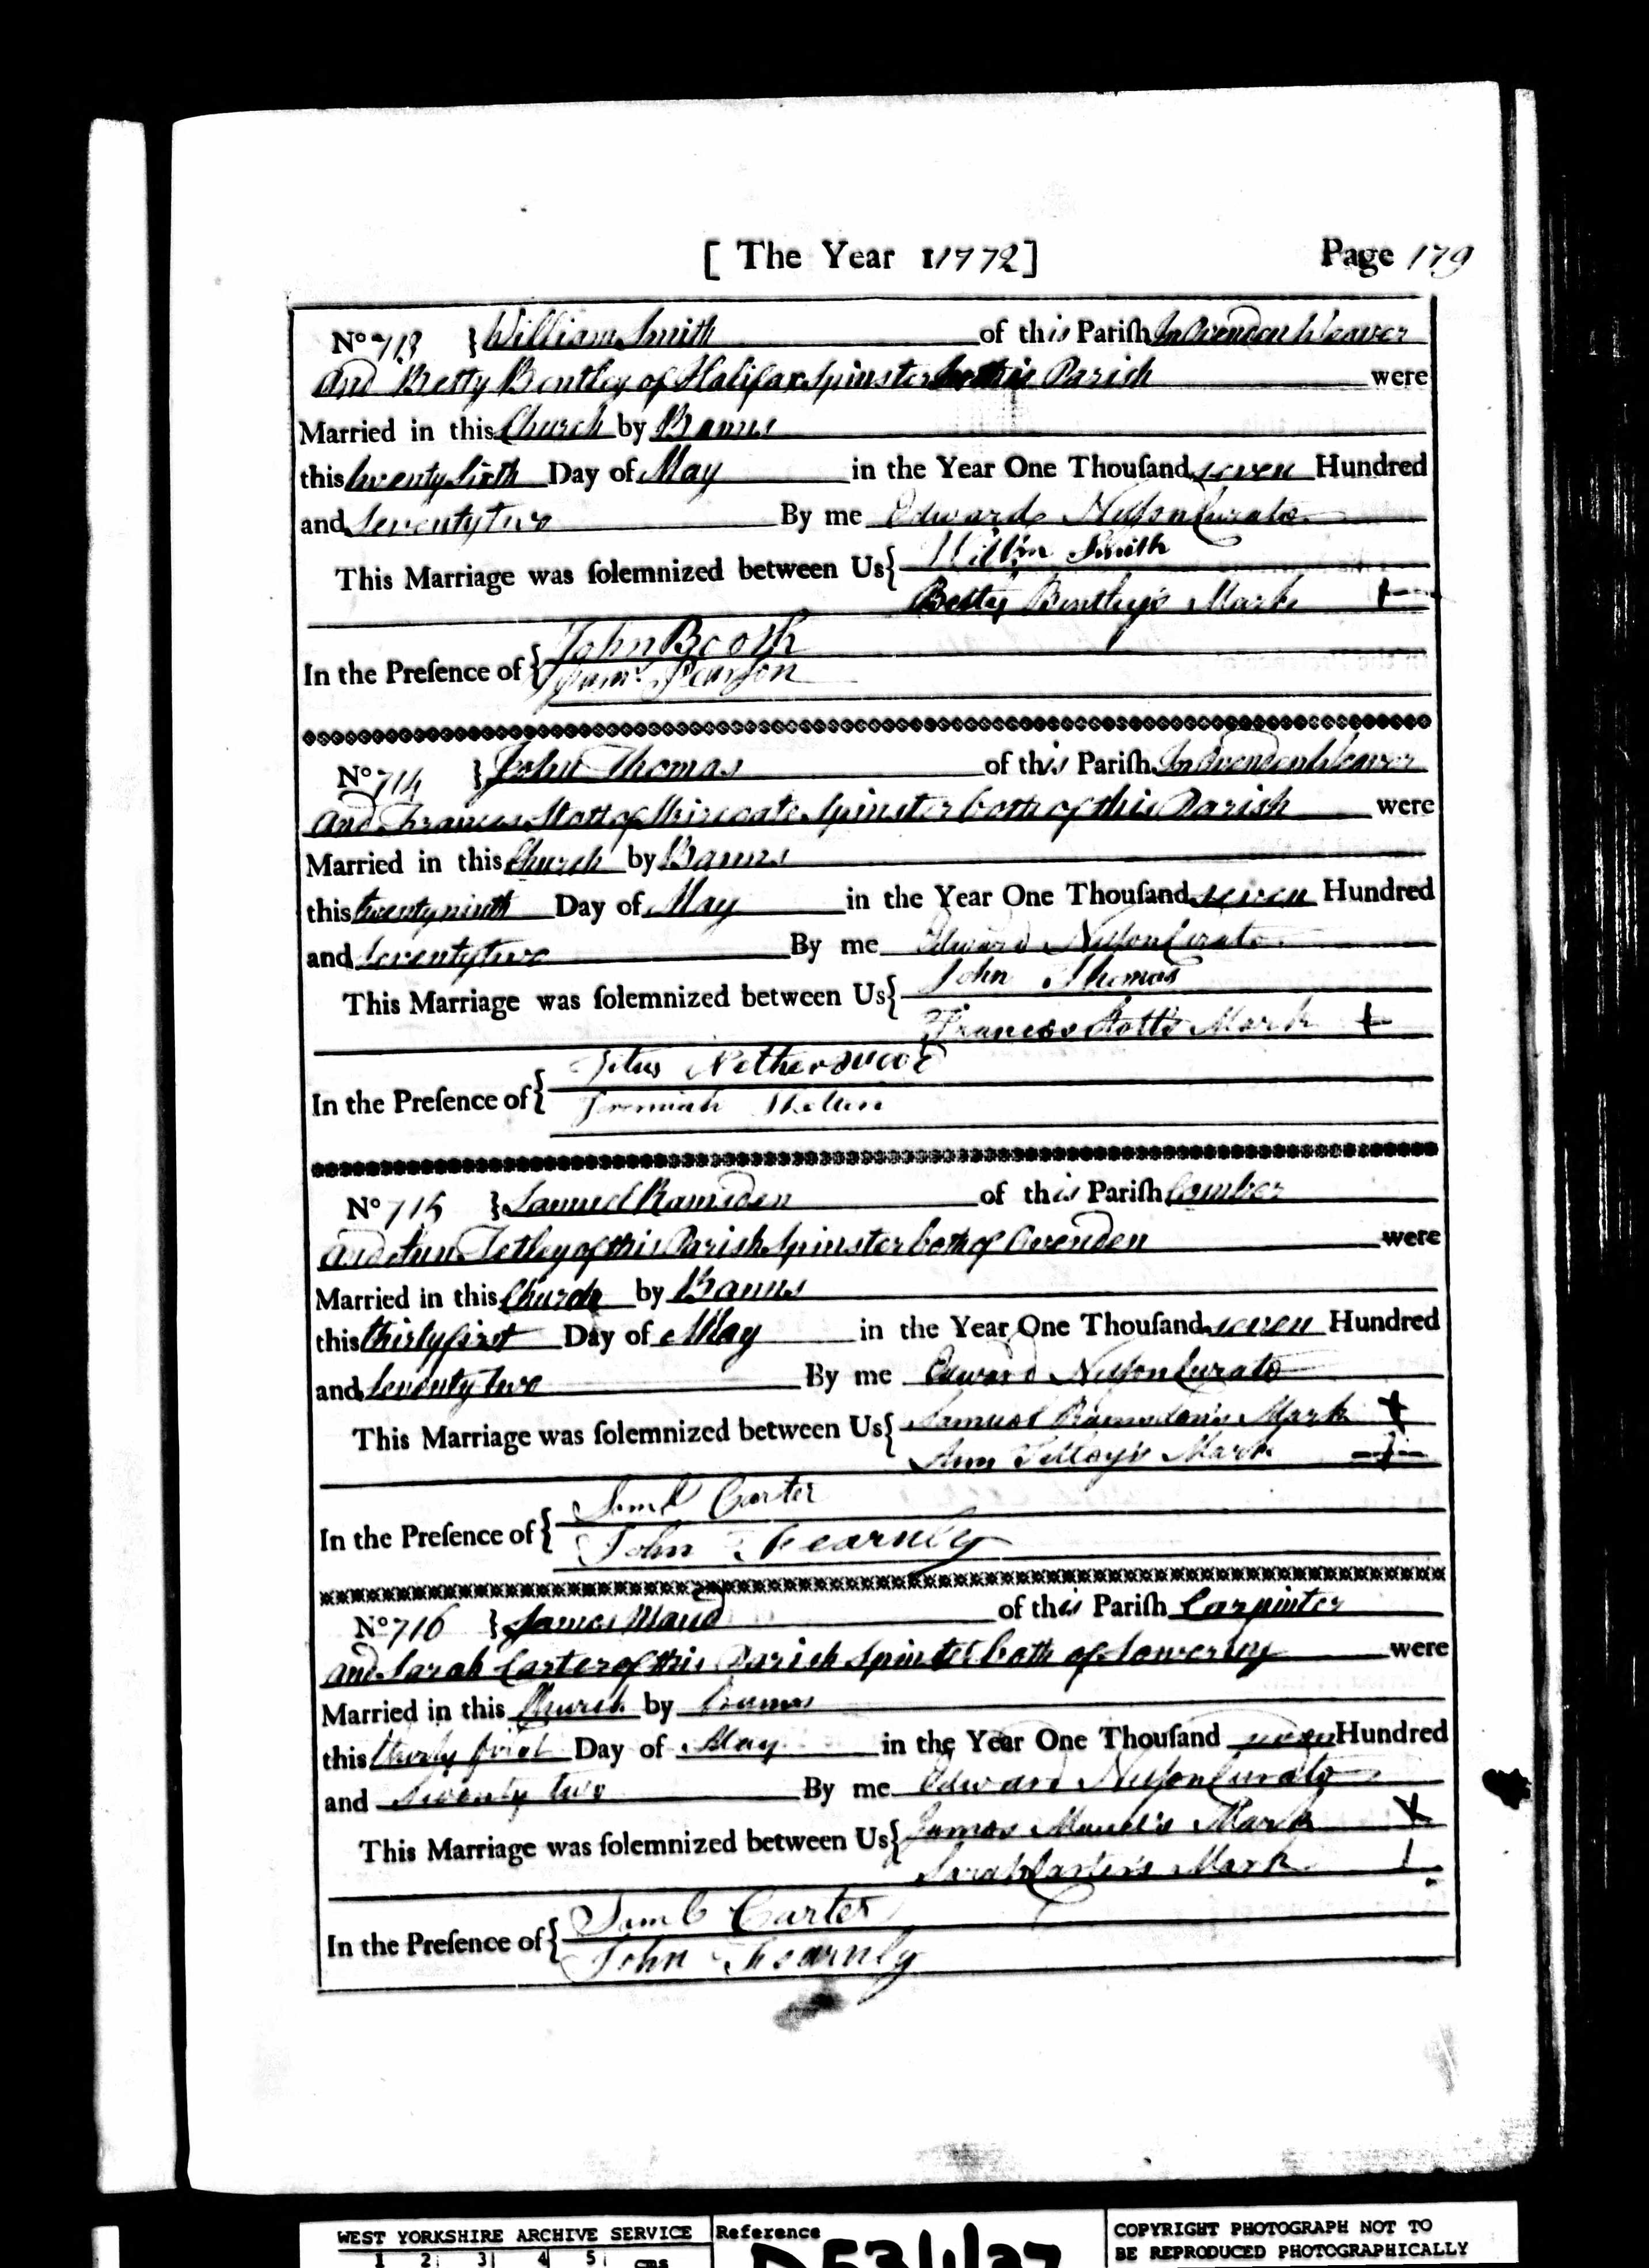 [ The Year 1772 ] Page 179
No 713 } William Smith of this Pariſh In Ovenden Weaver
And Betty Bentley of Halifax Spinster both this Parish were
Married in this Church by Banns
this twenty sixth Day of May in the Year One Thouſand seven Hundred
and Seventy two By me Edward Nelson Curate
This Marriage was ſolemnized between Us { Willm Smith
Betty Bentley's Mark +
In the Preſence of { John Booth
Saml Pearson
No 714 } John Thomas of this Pariſh In Ovenden Weaver
And Frances Stott of Spinster both of this Parish were
Married in this Church by Banns
this twenty ninth Day of May in the Year One Thouſand seven Hundred
and Seventy two By me Edward Nelson Curate
This Marriage was ſolemnized between Us { John Thomas
Frances Stott's Mark +
In the Preſence of { Titus Netherwood
Jeremiah
No 715 } Samuel Ramsden of this Pariſh Comber
And Ann Tetley of this Parish Spinster both of Ovenden were
Married in this Church by Banns
this thirty first Day of May in the Year One Thouſand seven Hundred
and Seventy two By me Edward Nelson Curate
This Marriage was ſolemnized between Us { Samuel Ramsden's Mark +
Ann Tetley's Mark +
In the Preſence of { Saml Carter
John Fearnly
No 716 } James Maud of this Pariſh Carpinter
And Sarah Carter of this Parish Spinster both of Sowerby were
Married in this Church by Banns
this thirty first Day of May in the Year One Thouſand seven Hundred
and Seventy two By me Edward Nelson Curate
This Marriage was ſolemnized between Us { James Maud's Mark X
Sarah Carter's Mark
In the Preſence of { Saml Carter
John Fearnly
WEST YORKSHIRE ARCHIVE SERVICE
1 2 3 4 5 cms
Reference
D53/1/37
COPYRIGHT PHOTOGRAPH NOT TO
BE REPRODUCED PHOTOGRAPHICALLY